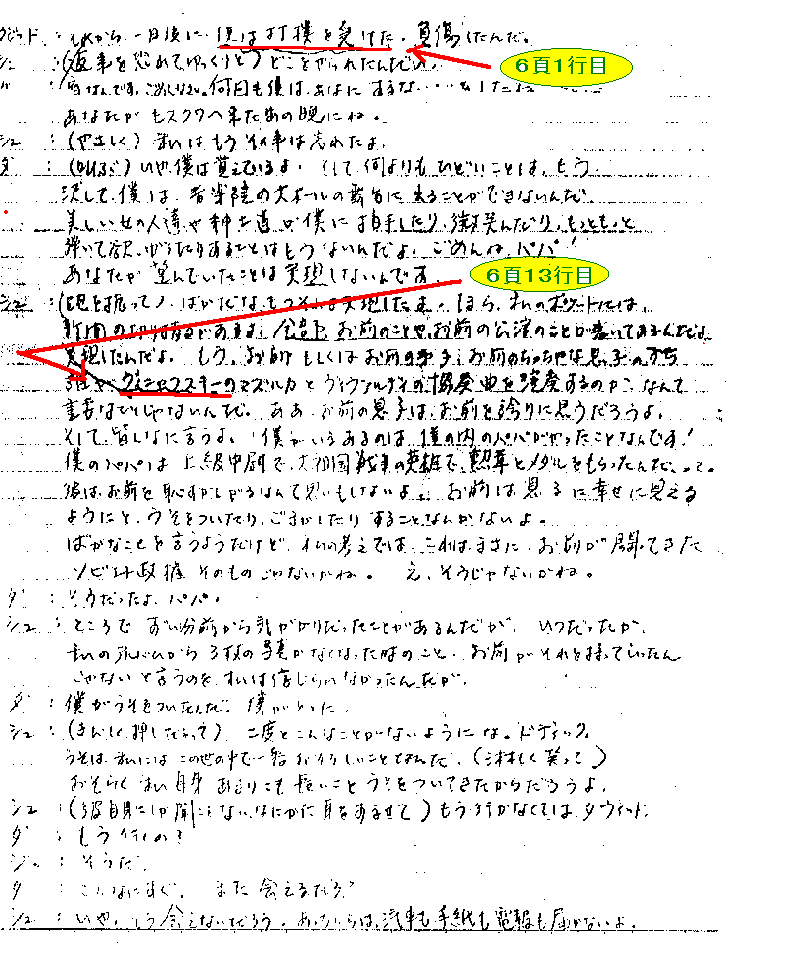 ダヴィッド：それから一日後に 僕は打撲を受けた。負傷したんだ。
6頁1行目
シュ：（返事を恐れてゆっくりと）どこをやられたんだい。
ダ：です。ごめんなさい。何日も僕は、
あなたがモスクワへ来たあの晩にね。
シュ：（やさしく）私はもうその事は忘れたよ。
ダ：（叫ぶ）いや僕は覚えているよ。そして何よりもひどいことは、もう
決して、僕は、音楽院の大ホールの舞台に出ることができないんだ。
美しい女の人達や紳士達が僕に拍手したり、微笑んだり、もっともっと
弾いて欲しがったりすることはもうないんだよ。ごめんね、パパ！
あなたが望んでいたことは実現しないんです。
6頁13行目
シュ：（頭を振って）ばかだな、もうそれは実現したよ。ほら、私のポケットには、
新聞の切り抜きがあるよ。お前のことや、お前の公演のことが書いてあるんだよ。
実現したんだよ。もう、お前 もしくはお前の息子、お前のちっちゃな息子のうち
ヴィニャフスキーのマズルカとヴィヴァルディの協奏曲を演奏するのか、なんて
重要なことじゃないんだ。ああ、お前の息子は、お前を誇りに思うだろうよ。
そして、皆んなに言うよ。「僕がいまあるのは、僕の内のパパがやったことなんです！
僕のパパは上級中尉で、大祖国戦争の英雄で、勲章とメダルをもらったんだ、って。
彼はお前を恥ずかしがるなんて思いもしないよ。お前は息子に幸せに見える
ようにと、うそをついたり、ごまかしたりすることなんかないよ。
ばかなことを言うようだけど、私の考えでは、これは、まさに、お前が闘ってきた
ソビエト政権そのものじゃないかね。え、そうじゃないかね。
ダ：そうだったよ、パパ。
シュ：ところで ずい分前から気がかりだったことがあるんだが、いつだったか、
私の から3枚の写真がなくなった時のこと、お前がそれを持っていったん
じゃないと言うのを、私は信じられなかったんだが。
ダ：僕がうそをついたんだ。僕がとった。
シュ：（きびしく押しだまって）二度とこんなことがないようにな。ドディック。
うそは、私には この世の中で一番おそろしいことなんだ。（笑って）
おそらく 私自身 あまりにも長いこと うそをついてきたからだろうよ。
シュ：（彼自身にしか聞こえないなにかに耳をすませて）もう行かなくては、ダヴィッド。
ダ：もう行くの？
シュ：そうだ。
ダ：こんなにすぐ。また会えるだろ？
シュ：いや、もう会えないだろう。あちらからは、汽車も手紙も電報も届かないよ。